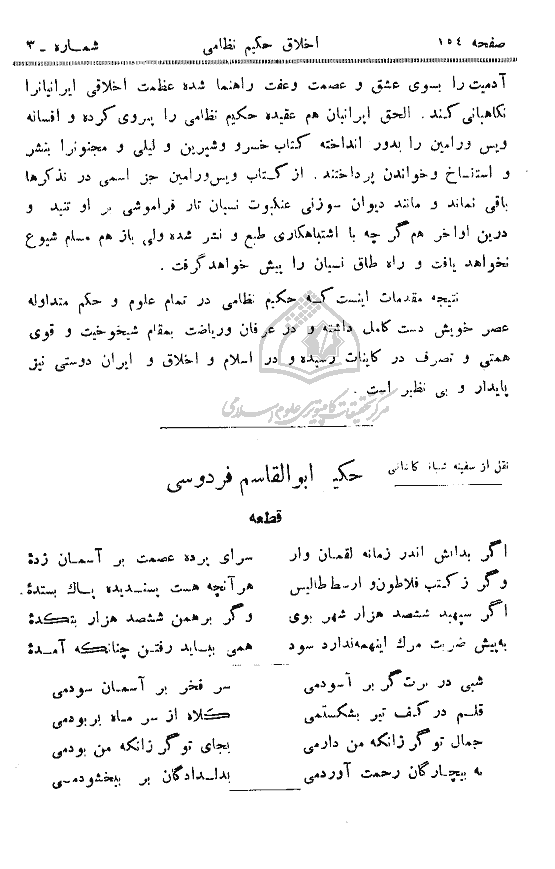 صفحه ١٥٤
اخلاق حکیم نظامی
شماره - ٣
آدمیت را بسوی عشق و عصمت وعفت راهنما شده عظمت اخلاقی ایرانیانرا
نگاهبانی کند . الحق ایرانیان هم عقیده حکیم نظامی را پیروی کرده و افسانه
ویس ورامین را بدور انداخته کتاب خسرو وشیرین و لیلی و مجنونرا بنشر
و استنساخ وخواندن پرداختند . از کتاب ویس‌ورامین جز اسمی در تذکرها
باقی نماند و مانند دیوان سوزنی عنکبوت نسیان تار فراموشی بر او تنید و
درین اواخر هم‌گر چه با اشتباهکاری طبع و نشر شده ولی باز هم مسلم شیوع
نخواهد یافت و راه طاق نسیان را پیش خواهد گرفت .
نتیجه مقدمات اینست که حکیم نظامی در تمام علوم و حکم متداوله
عصر خویش دست کامل داشته و در عرفان وریاضت بمقام شیخوخیت و قوی
همتی و تصرف در کاینات رسیده و در اسلام و اخلاق و ایران دوستی نیز
پایدار و بی نظیر است .
مرکز تحقیقات کامپیوتری علوم اسلامی
نقل از سفینه
حکیم ابوالقاسم فردوسی
قطعه
اگر بدانش اندر زمانه لقمان وار سرای پرده عصمت بر آسمان زدهٔ
وگر ز کتب فلاطون‌و ارسطاطالیس هر آنچه هست پسندیده پاک بستدهٔ .
اگر سپهبد ششصد هزار شهر بوی وگر برهمن ششصد هزار بتکدهٔ
به‌پیش ضربت مرك اینهمه‌ندارد سود همی بباید رفتن چنانکه آمدهٔ
شبی در برت گر بر آسودمی سر فخر بر آسمان سودمی
قلم در کف تیر بشکستمی کلاه از سر ماه بربودمی
جمال تو گر زانکه من دارمی بجای تو گر زانکه من بودمی
به بیچارگان رحمت آوردمی بدلدادگان بر ببخشودمی